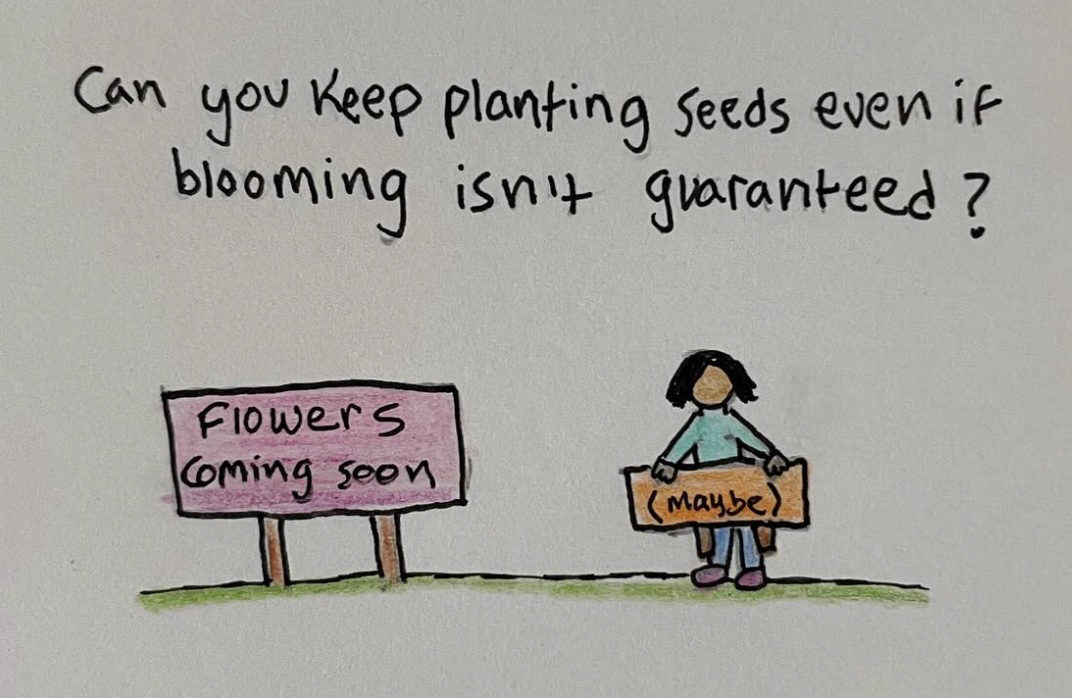 Can you keep planting seeds even if
blooming isn't guaranteed?
Flowers
coming soon
(maybe)